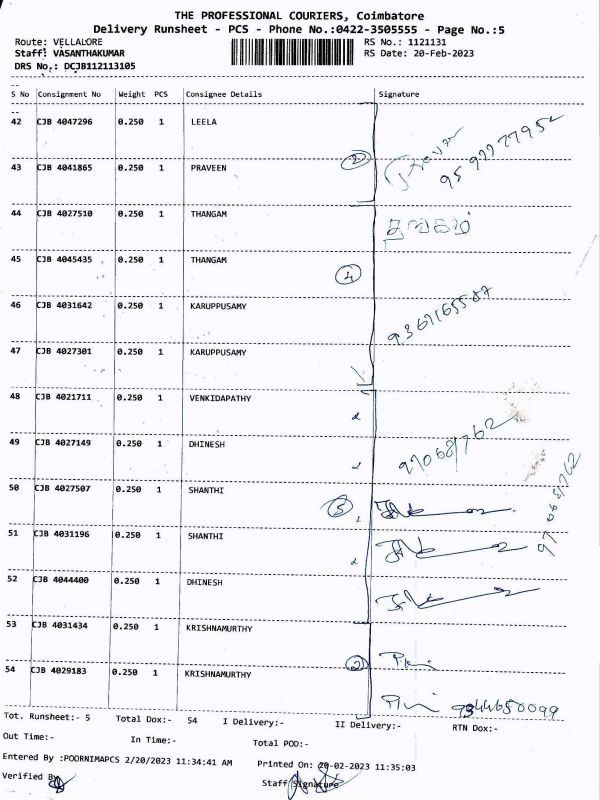 THE PROFESSIONAL COURIERS, Coimbatore
Delivery Runsheet - PCS - Phone No.:0422-3505555 - Page No.:5
Route: VELLALORE RS No.: 1121131
Staff: VASANTHAKUMAR RS Date: 20-Feb-2023
DRS No.: DCJB112113105
S No Consignment No Weight PCS Consignee Details Signature
42 CJB 4047296 0.250 1 LEELA
43 CJB 4041865 0.250 1 PRAVEEN 2
44 CJB 4027510 0.250 1 THANGAM தங்கம்
45 CJB 4045435 0.250 1 THANGAM 4
46 CJB 4031642 0.250 1 KARUPPUSAMY
47 CJB 4027301 0.250 1 KARUPPUSAMY
48 CJB 4021711 0.250 1 VENKIDAPATHY
49 CJB 4027149 0.250 1 DHINESH
50 CJB 4027507 0.250 1 SHANTHI 5
51 CJB 4031196 0.250 1 SHANTHI
52 CJB 4044400 0.250 1 DHINESH
53 CJB 4031434 0.250 1 KRISHNAMURTHY
54 CJB 4029183 0.250 1 KRISHNAMURTHY 2 9344650099
Tot. Runsheet:- 5 Total Dox:- 54 I Delivery:- II Delivery:- RTN Dox:-
Out Time:- In Time:- Total POD:-
Entered By :POORNIMAPCS 2/20/2023 11:34:41 AM Printed On: 20-02-2023 11:35:03
Verified By Staff Signature